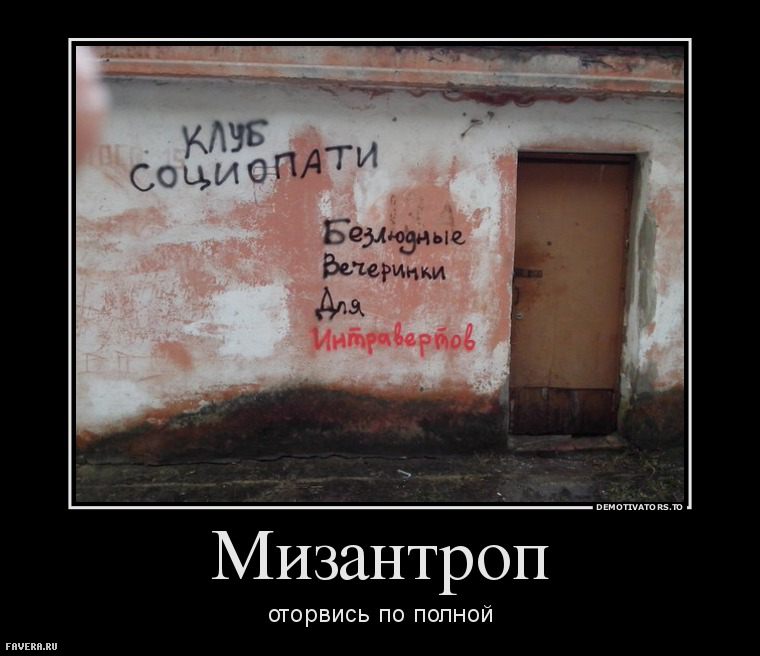 КЛУБ
СОЦИОПАТИ
Безлюдные
Вечеринки
Для
Интравертов
DEMOTIVATORS.TO
Мизантроп
оторвись по полной
FAVERA.RU